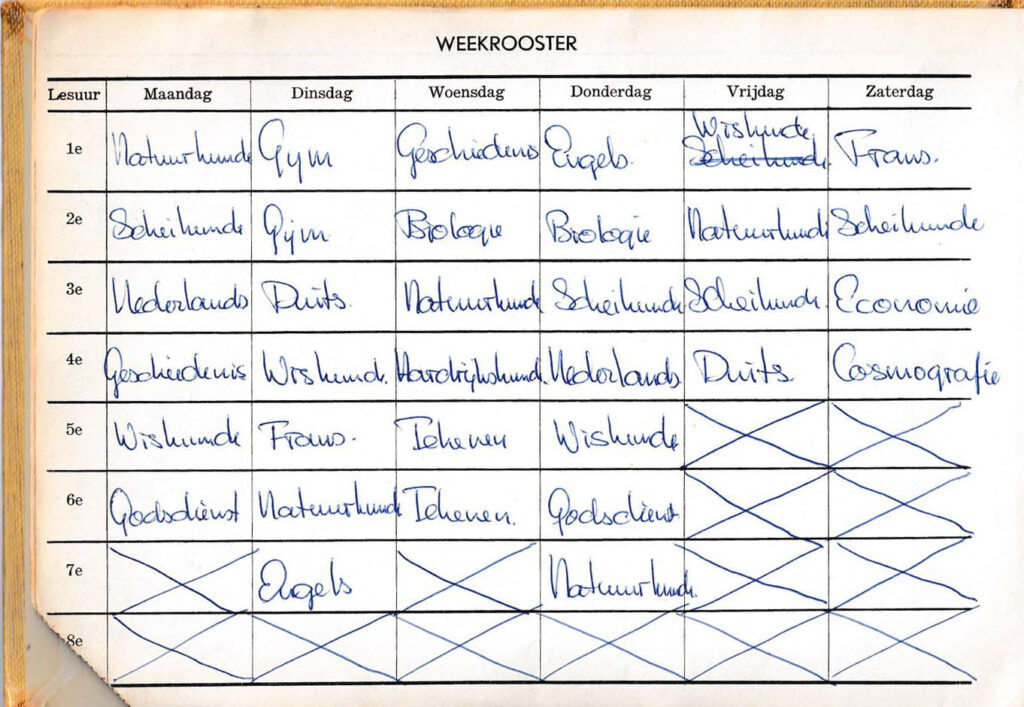 WEEKROOSTER
Lesuur Maandag Dinsdag Woensdag Donderdag Vrijdag Zaterdag
Wiskunde
1e Natuurkunde Gym Geschiedenis Engels. Scheikunde Frans.
2e Scheikunde Gym Biologie Biologie Natuurkunde Scheikunde
3e Nederlands Duits. Natuurkunde Scheikunde Scheikunde. Economie
4e Geschiedenis Wiskunde. Aardrijkskunde. Nederlands Duits. Cosmografie
5e Wiskunde Frans. Tekenen Wiskunde
6e Godsdienst Natuurkunde Tekenen. Godsdienst
7e Engels Natuurkunde.
8e